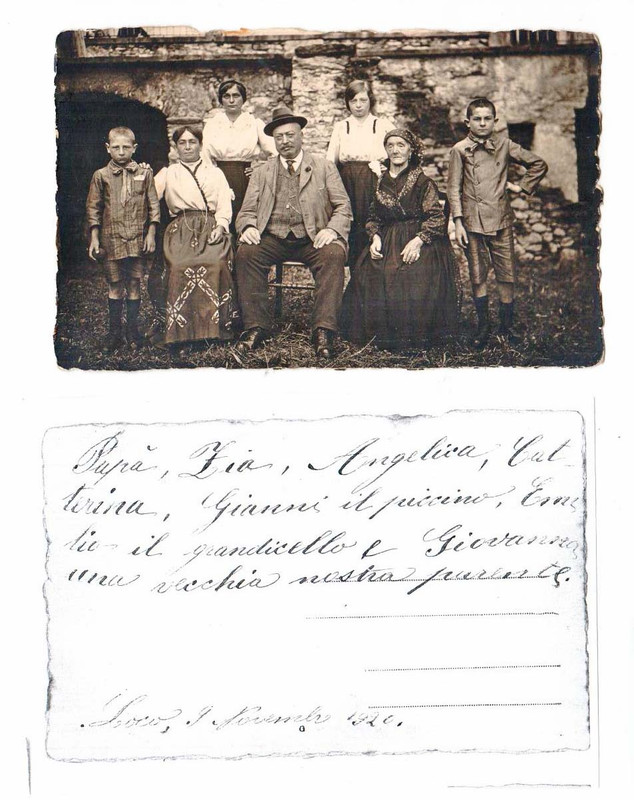 Papà, Zia, Angelica, Cat-
terina, Gianni il piccino, Emi-
lio il grandicello e Giovanna
una vecchia nostra parente.
Loco, 9 Novembre 1920.